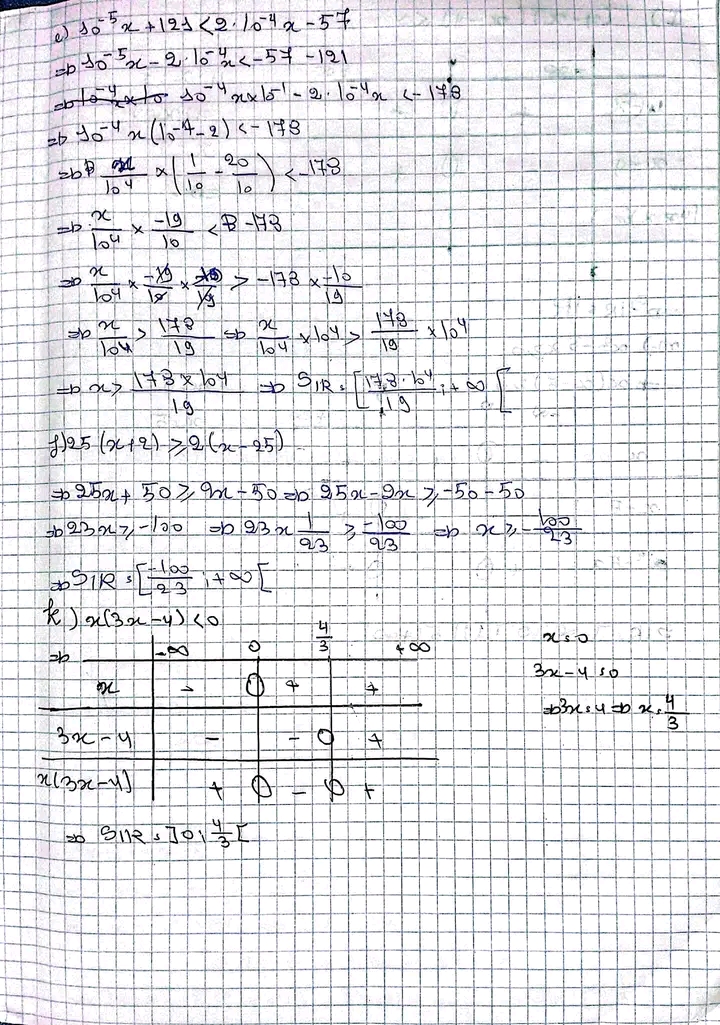 e) 10⁻⁵x + 121 < 2·10⁻⁴x - 57
⇒ 10⁻⁵x - 2·10⁻⁴x < -57 - 121
⇒ 10⁻⁴x × 10⁻¹ - 2·10⁻⁴x < -178
⇒ 10⁻⁴x (10⁻¹ - 2) < -178
⇒ x/10⁴ × (1/10 - 20/10) < -178
⇒ x/10⁴ × -19/10 < -178
⇒ x/10⁴ × -19/10 × -10/19 > -178 × -10/19
⇒ x/10⁴ > 178/19 ⇒ x/10⁴ × 10⁴ > 178/19 × 10⁴
⇒ x > 178 × 10⁴/19 ⇒ SIR = [178·10⁴/19 ; +∞ [
f) 25 (x+2) ≥ 2(x - 25)
⇒ 25x + 50 ≥ 2x - 50 ⇒ 25x - 2x ≥ -50 - 50
⇒ 23x ≥ -100 ⇒ 23x 1/23 ≥ -100/23 ⇒ x ≥ -100/23
⇒ SIR = [-100/23 ; +∞ [
k) x(3x - 4) < 0
⇒ -∞ 0 4/3 +∞
x - 0 + +
3x - 4 - - 0 +
x(3x - 4) + 0 - 0 +
⇒ SIR = ]0 ; 4/3 [
x = 0
3x - 4 = 0
⇒ 3x = 4 ⇒ x = 4/3